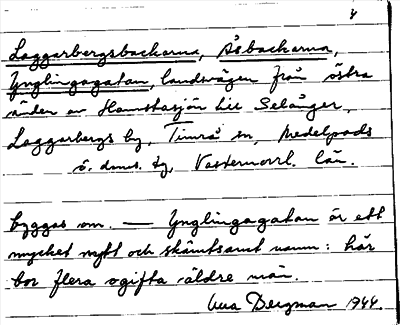 4
Laggarbergsbackarna, Åsbackarna,
Ynglingagatan, landsvägen från östra
änden av Hamstasjön till Selånger,
Laggarbergs by, Timrå sn, Medelpads
ö. doms. tg, Västernorrl. län.
bygges om. — Ynglingagatan är ett
mycket nytt och skämtsamt namn: här
bor flera ogifta äldre män.
Bergman 1944.